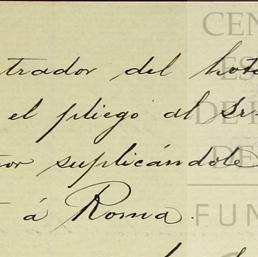 trador del hote
el pliego al Sr.
or suplicándole
á Roma.
CEN
ES
DE
DE
FUN